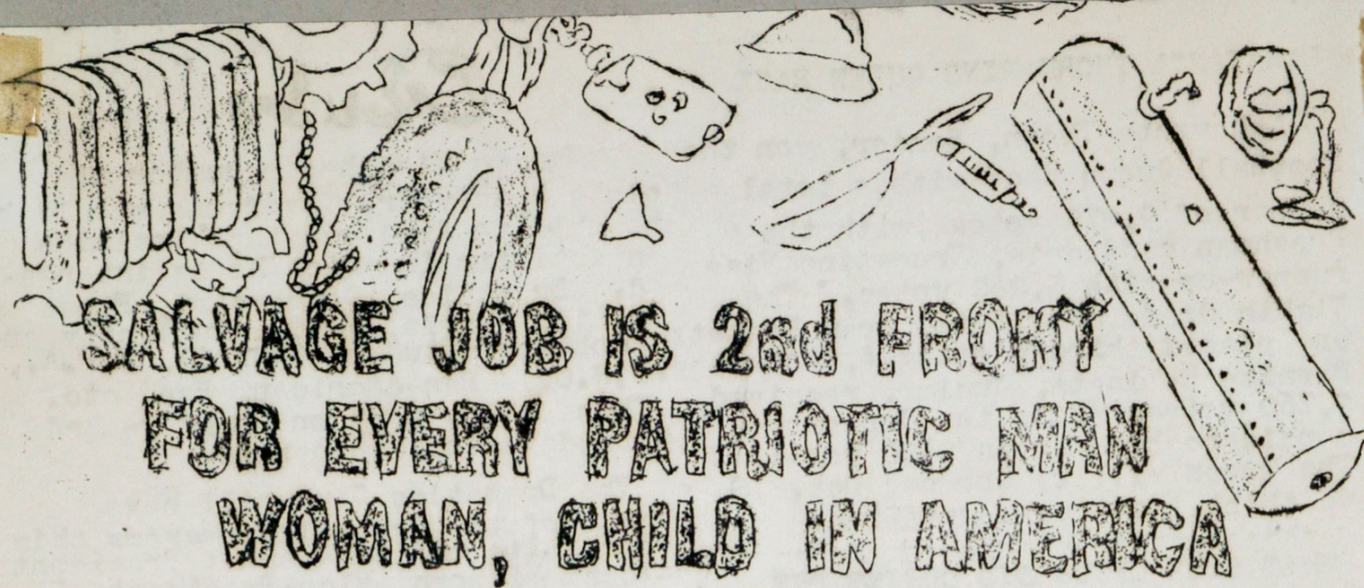 SALVAGE JOB IS 2nd FRONT
FOR EVERY PATRIOTIC MAN
WOMAN, CHILD IN AMERICA